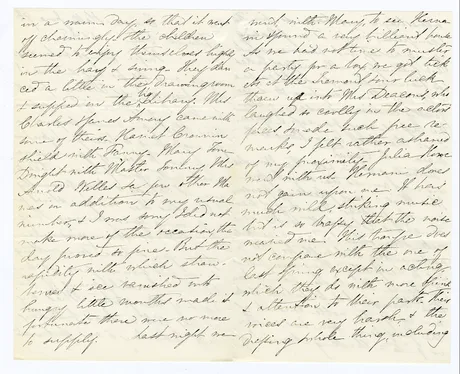 in a warm day, so that it went
off charmingly & the children
seemed to enjoy themselves highly
in the hay & swing they dan
ced a little in the drawing room
& supped in the library. Mrs
Charles Amory came with
some of theirs Harriet
shield with Fanny. Mary Jane
Dwight with Master Mrs
Arnold Welles & a few other Ma
mas in addition to my usual
number, & I was sorry I did not
make more of the occasion the
day proved so fine. But the
rapidity with which straw-
berries & ice vanished into
hungry little mouths made it
fortunate there were no more
to supply. Last night we
went with Mary to see Hernani
in a very brilliant house
As we had not time to muster
a party for a box we got tick
ets at the & our luck
threw us into Mrs Deacon's, who
laughed so coolly in the actors
faces & made such free re-
marks, I felt rather ashamed
of my proximity. Julia
home with us. Hernani does
not gain upon me. It has
much striking music
but is so brassy that the noise
wearied me. This does
not compare with the one of
last spring except in acting,
which they do with more
& attention to their parts. Their
voices are very harsh & the
whole thing, including